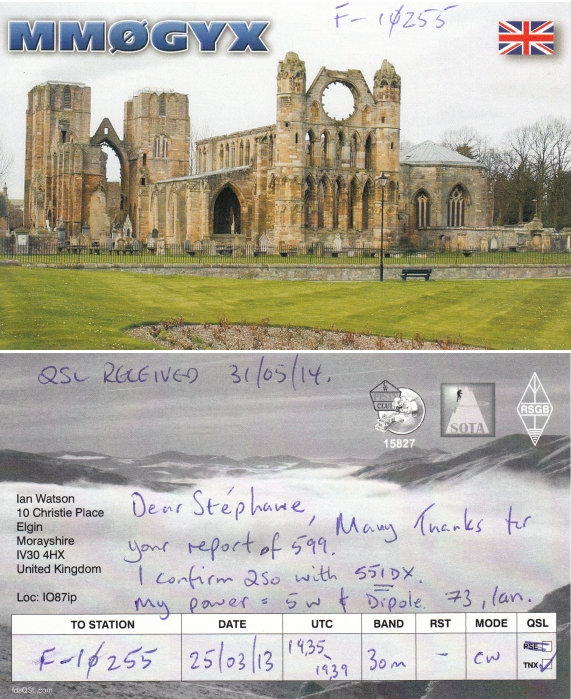 F-1Ø255
MMØGYX
QSL RECEIVED 31/05/14.
FISTS
CLUB
15827
SOTA
RSGB
Ian Watson
10 Christie Place
Elgin
Morayshire
IV30 4HX
United Kingdom
Loc: IO87ip
Dear Stéphane,
Many Thanks for
your report of 599.
I confirm QSO with 551DX.
My power = 5w & Dipole. 73, Ian.
TO STATION DATE UTC BAND RST MODE QSL
F-1Ø255 25/03/13 1935 - 1939 30m - CW PSE
TNX